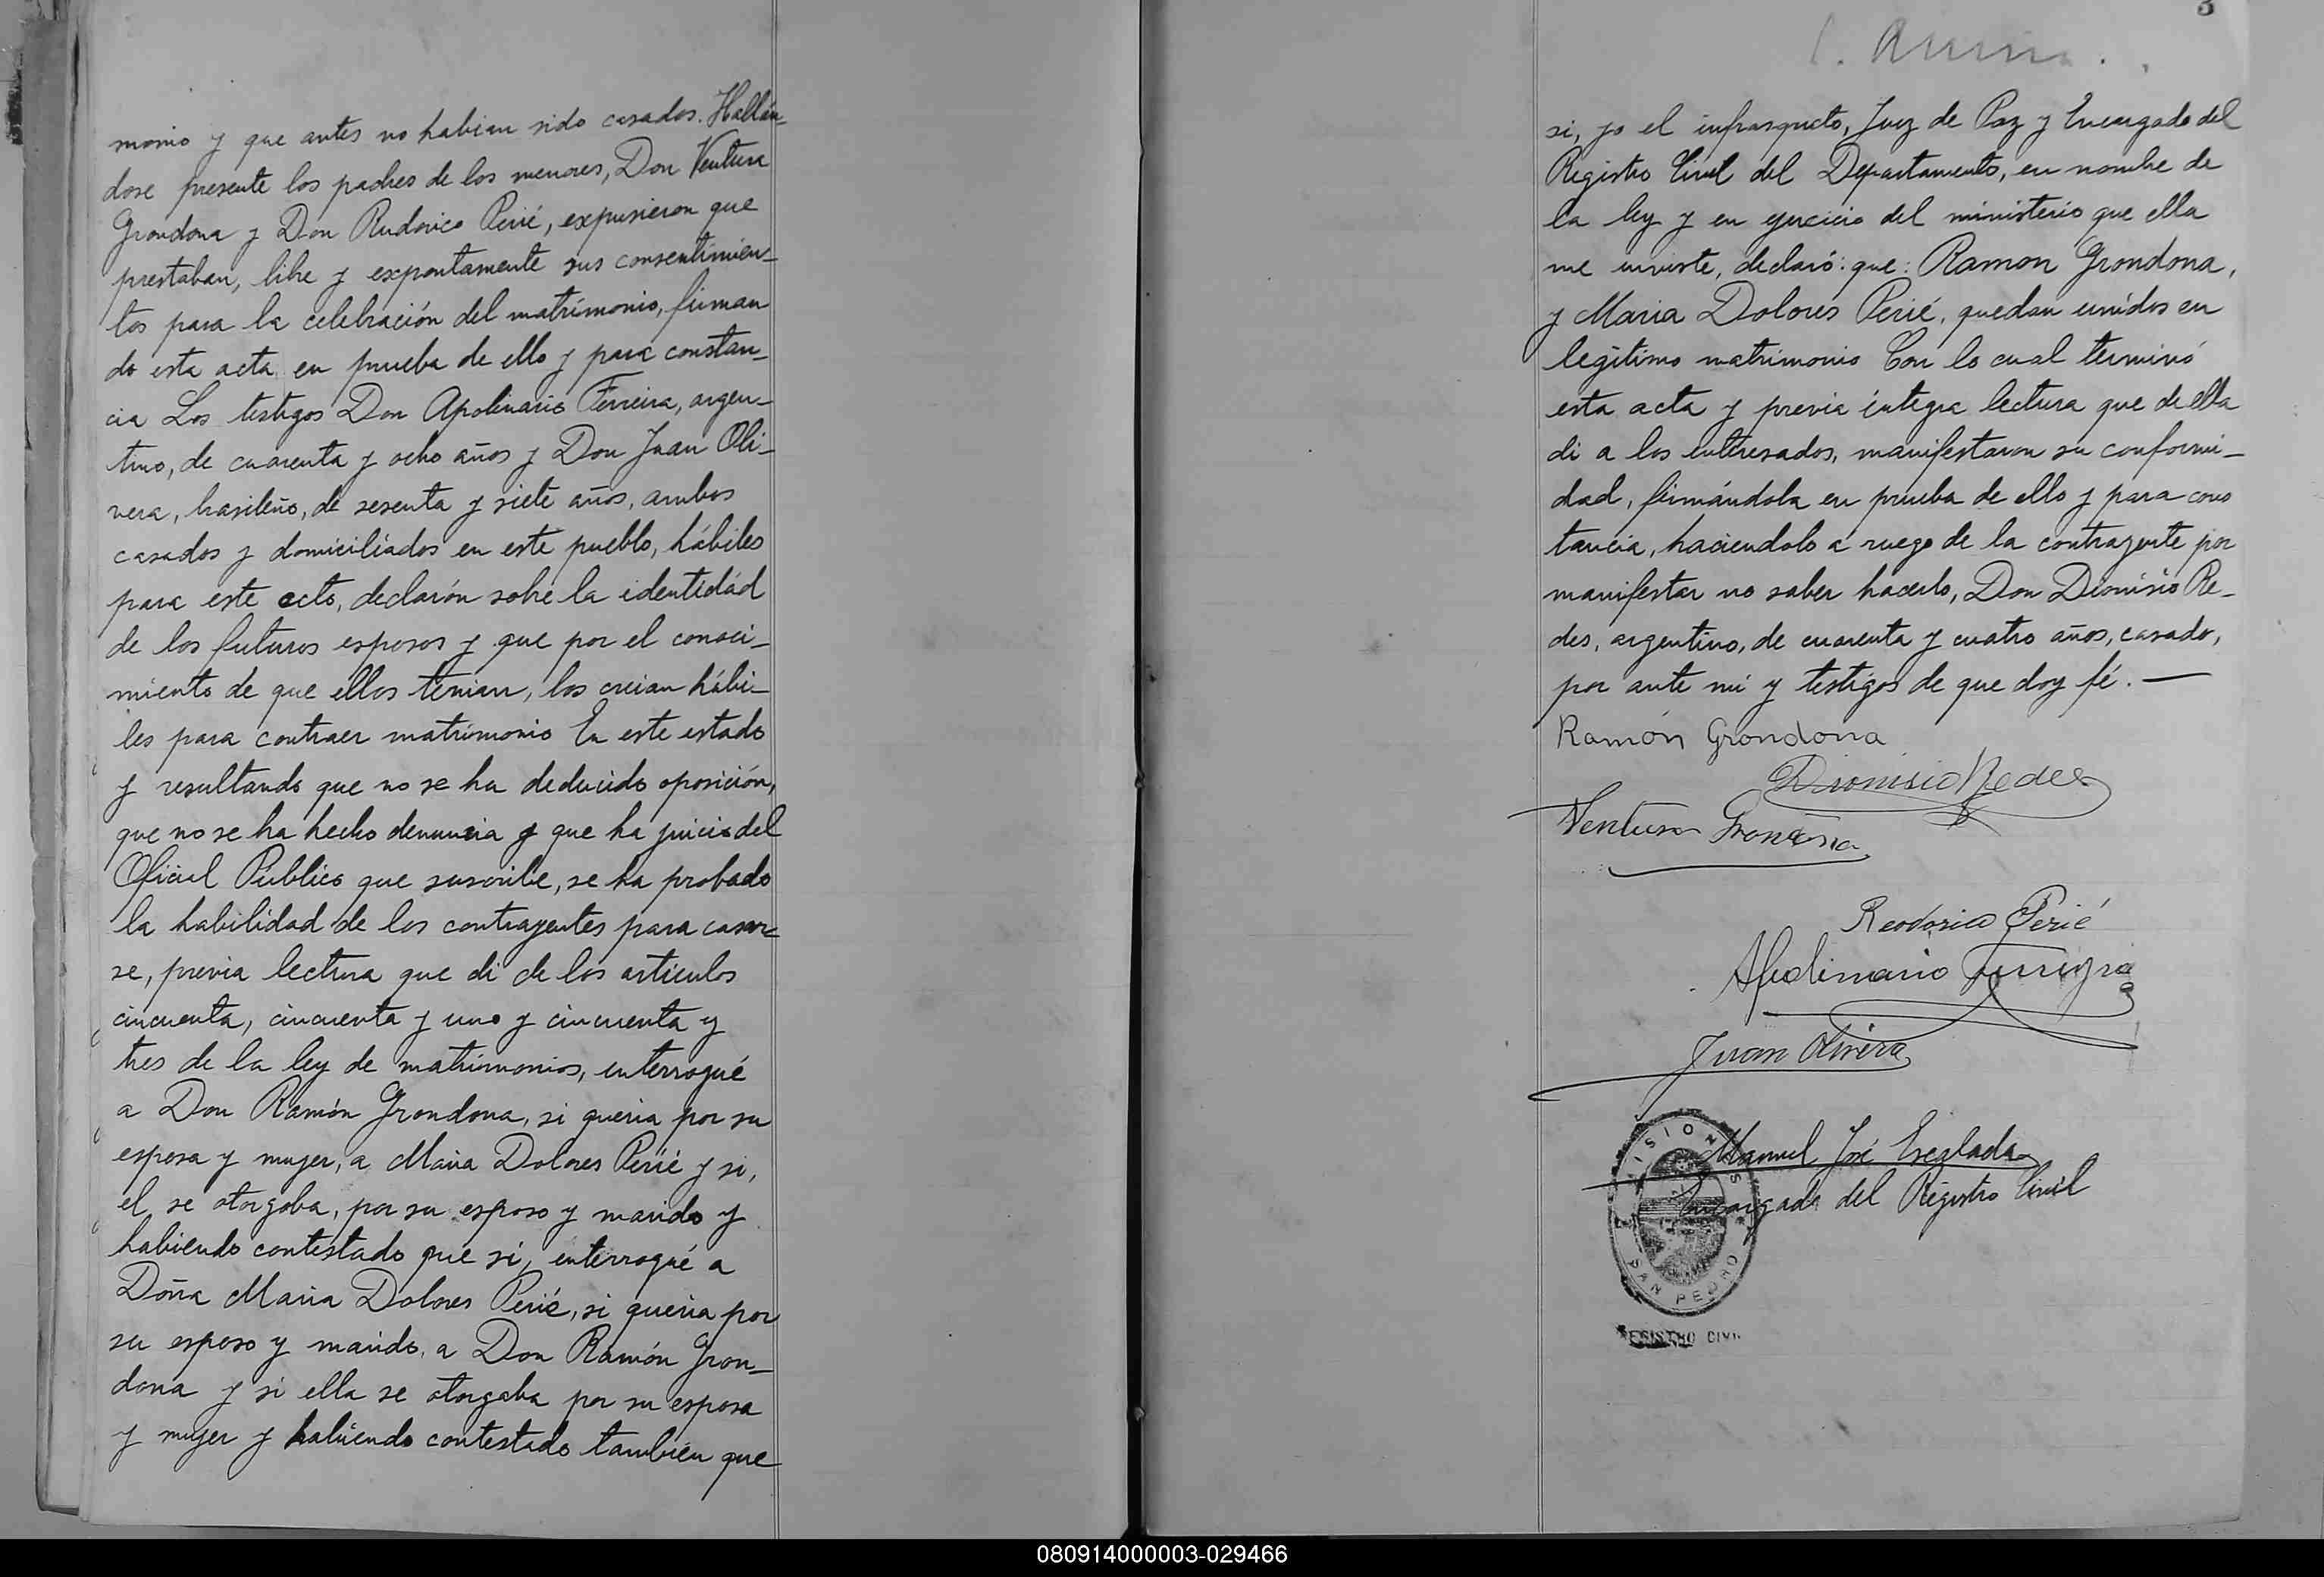 monio y que antes no habian sido casados. Hallán-
dose presente los padres de los menores, Don Ventura
Grondona y Don Rudorico Perié, expusieron que
prestaban, libre y expontamente sus consentimien-
tos para la celebración del matrimonio, firman
do esta acta en prueba de ello y para constan-
cia Los testigos Don Apolinario Ferreira, argen-
tino, de cuarenta y ocho años y Don Juan Oli-
vera, brasileño, de sesenta y siete años, ambos
casados y domiciliados en este pueblo, hábiles
para este acto, declarón sobre la identidád
de los futuros esposos y que por el conoci-
miento de que ellos tenian, los creian hábi-
les para contraer matrimonio En este estado
y resultando que no se ha deducido oposición,
que no se ha hecho denuncia y que ha juicio del
Oficial Público que suscribe, se ha probado
la habilidad de los contrayentes para casar-
se, previa lectura que di de los artículos
cincuenta, cincuenta y uno y cincuenta y
tres de la ley de matrimonios, interrogué
a Don Ramón Grondona, si queria por su
esposa y mujer, a Maria Dolores Perié y si,
el se otorgaba, por su esposo y marido y
habiendo contestado que sí, interrogué a
Doña Maria Dolores Perié, si queria por
su esposo y marido, a Don Ramón Gron-
dona y si ella se otorgaba por su esposa
y mujer y habiendo contestado tambien que
3
si, yo el infrasqueto, Juez de Paz y Encargado del
Registro Civil del Departamento, en nombre de
la ley y en ejercicio del ministerio que ella
me inviste, declaró: que: Ramon Grondona,
y Maria Dolores Perié, quedan unidos en
legítimo matrimonio Con lo cual terminó
esta acta y previa íntegra lectura que de ella
di a los interesados, manifestaron su conformi-
dad, firmándola en prueba de ello y para cons
tancia, haciendolo a ruego de la contrayente por
manifestar no saber hacerlo, Don Dionisio Re-
des, argentino, de cuarenta y cuatro años, casado,
por ante mi y testigos de que doy fé. —
Ramón Grondona
Dionisio Redes
Ventura Grondona
Reodorico Perié
Apolinario Ferreyra
Juan Olivera
Manuel José
Encargado del Registro Civil
MISIONES
SAN PEDRO
REGISTRO CIVIL
080914000003-029466